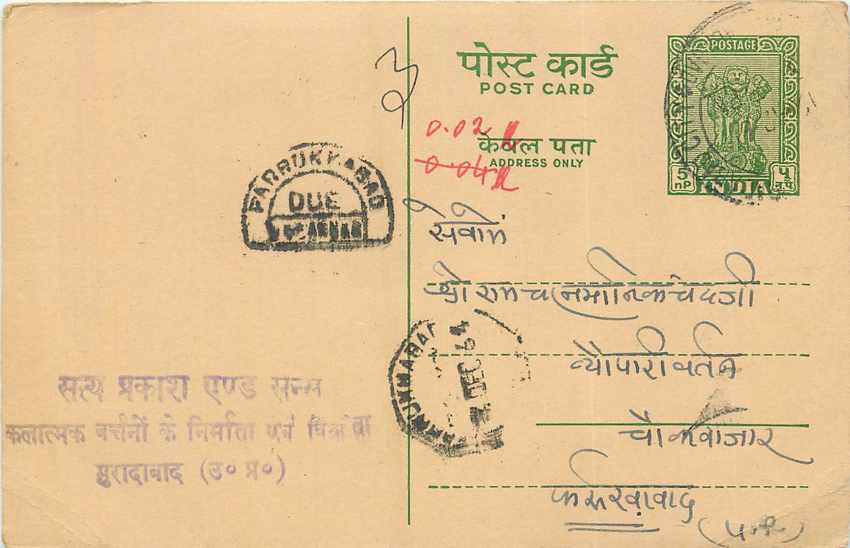 पोस्ट कार्ड
POST CARD
POSTAGE
0.02
केवल पता
0.04
ADDRESS ONLY
5 nP
५ न.पै.
INDIA
FARRUKHABAD
DUE
सेवामें
श्री रामचन्द्र मानिकचंदजी
DEC 64
व्यौपारी वर्तन
चौक बाजार
फर्रुखावाद
सत्य प्रकाश एण्ड सन्स
कलात्मक बर्तनों के निर्माता एवं विक्रेता
मुरादाबाद (उ० प्र०)